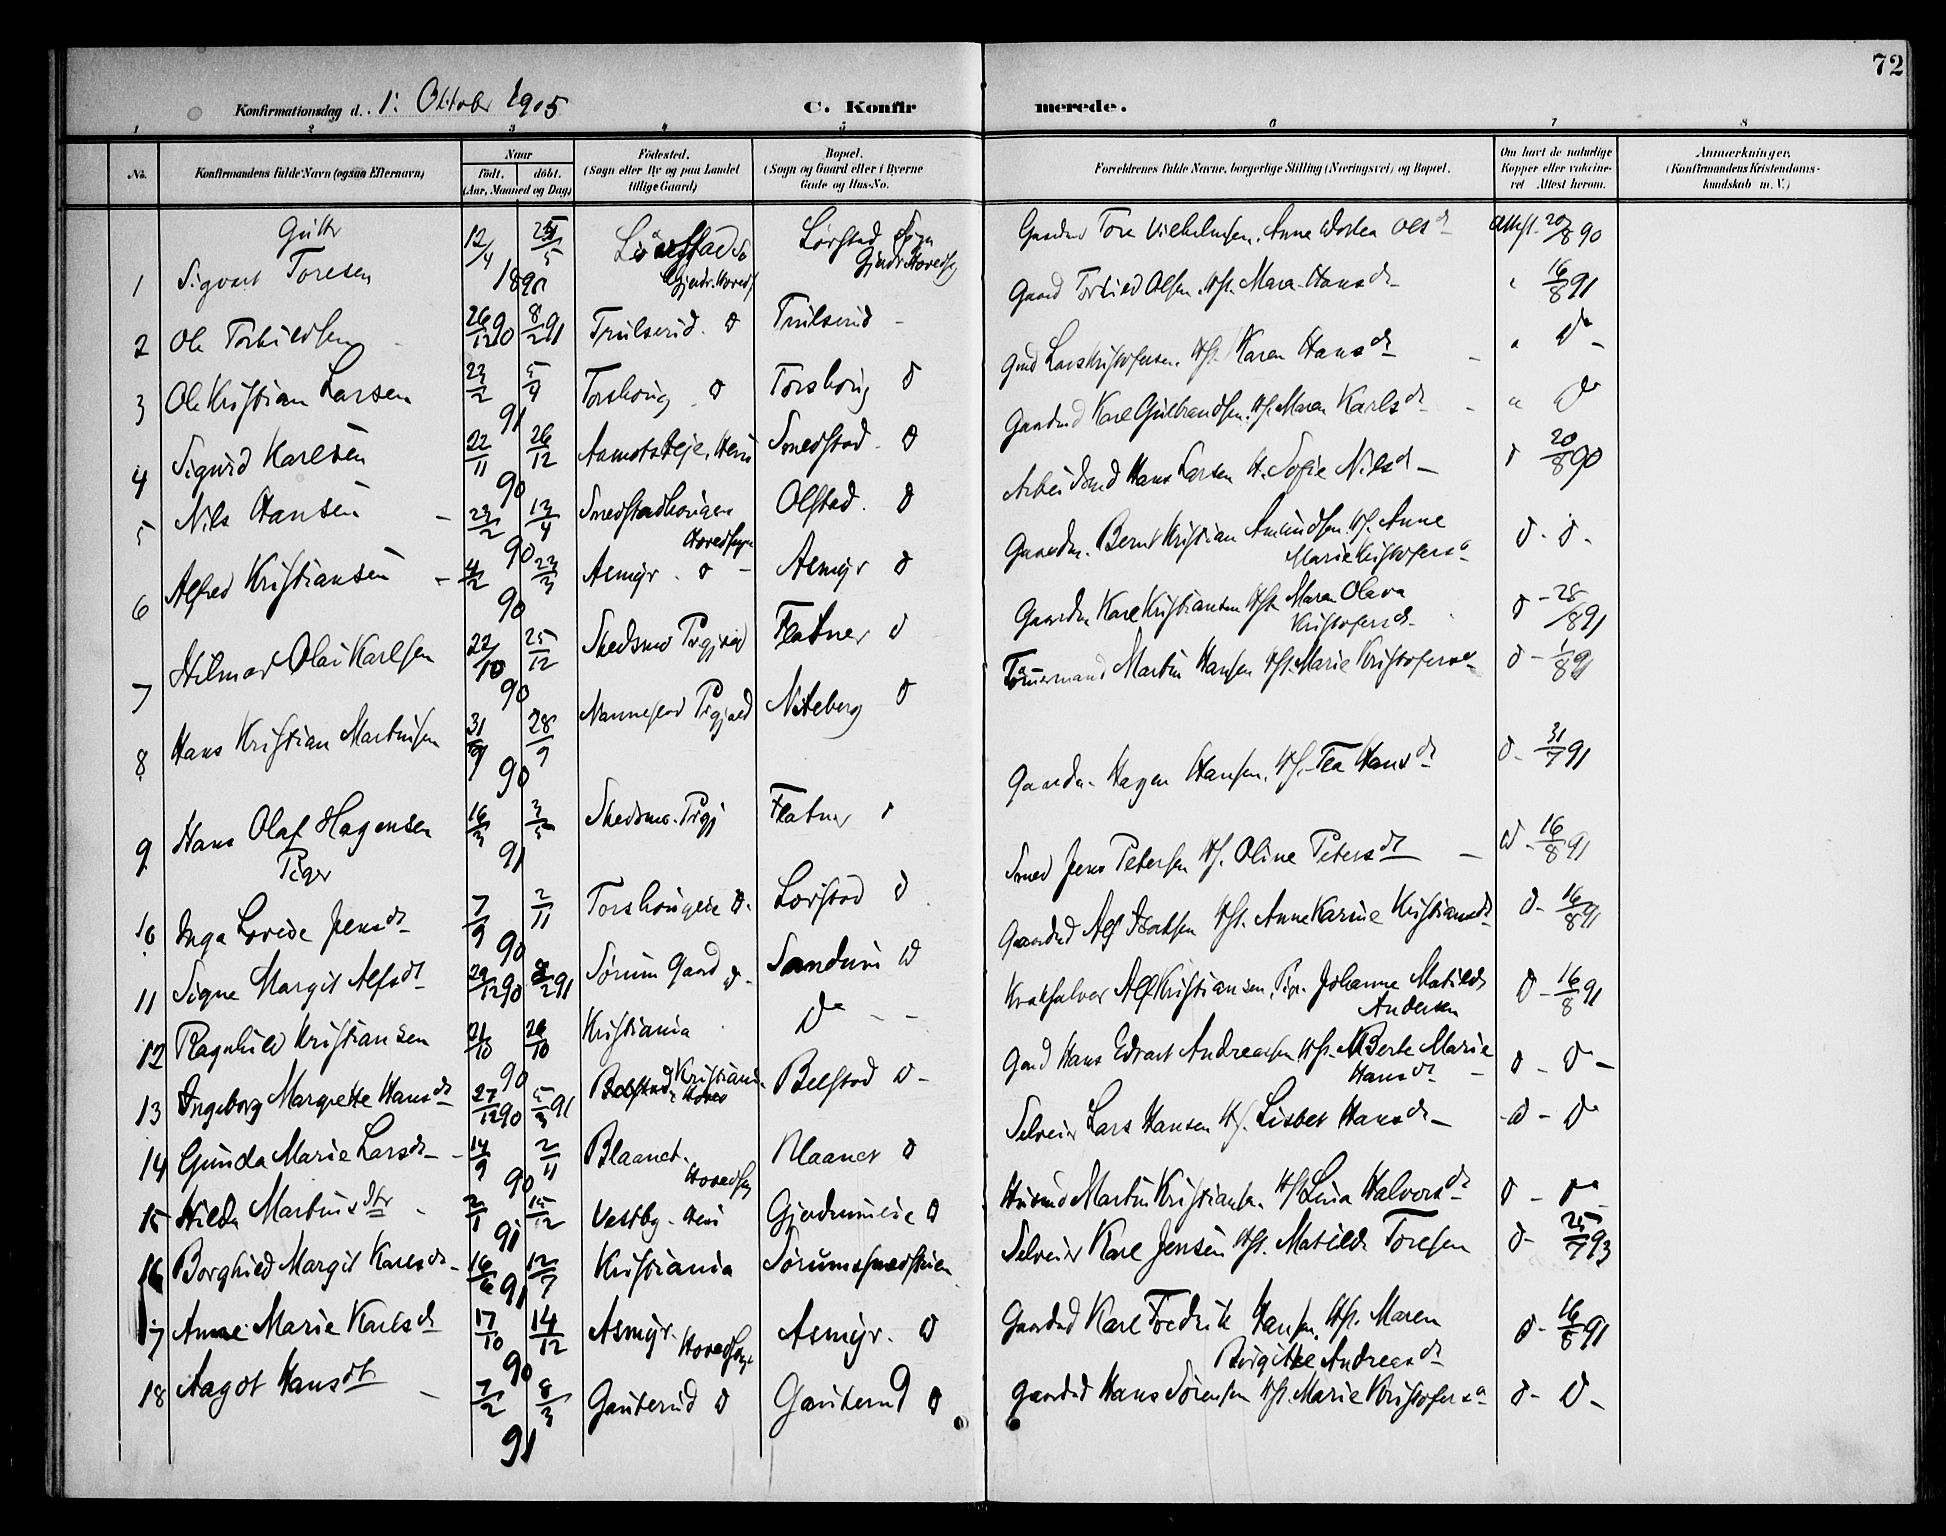 72
Konfirmationsdag d. 1. Oktober 1905
C. Konfirmerede.
1 2 3 4 5 6 7 8
No.
Konfirmandens fulde Navn (ogsaa Efternavn)
Naar
født. døbt.
(Aar, Maaned og Dag)
Fødested.
(Sogn eller By og paa Landet
tillige Gaard)
Bopæl.
(Sogn og Gaard eller i Byerne
Gade og Hus-No.
Forældrenes fulde Navne, borgerlige Stilling (Næringsvei) og Bopæl.
Om havt de naturlige
Kopper eller vakcine-
ret Attest herom.
Anmærkninger.
(Konfirmandens Kristendoms-
kundskab m. V.)
Gutter
1 Sigvart Toresen 12/4 25/5 1890 Lørstad Gjerdr. Hoveds Lørstad Sogn Gjerdr. Hoveds Gaardm Tore Vilhelmsen, Anne Olsd Attest 20/8 90
2 Ole Torkildsen 26/12 90 8/2 91 Trulserud d Trulserud Gaard Torkild Olsen, Hst. Mara Hansd " 16/8 91
3 Ole Kristian Larsen 23/2 5/4 91 Torshoug d Torshoug d Gmd Lars Kristofersen, Hst. Karen Hansd " do
4 Sigurd Karlsen 22/11 26/12 90 Smedstad d Gaardmd Karl Gulbrandsen, Hst. Maren Karlsd " do
5 Nils Hansen 23/2 13/4 90 Smedstadhougen Hovedsogn Olstad d Arbeidsmd Hans Larsen H. Sofie Nilsd d 20/8 90
6 Alfred Kristiansen 4/2 23/3 90 Asmyr d Asmyr d Gaardm. Bernt Kristian Amundsen Hst. Anne Marie Kristofersd d d
7 Hilmar Olai Karlsen 22/10 25/12 90 Skedsmo Prgjæld Flatner d Gaardm Karl Kristiansen Hst. Maren Olava Kristofersd d 28/8 91
8 Hans Kristian Martinsen 31/7 28/9 90 Nannestad Prgjæld Niteberg d Tømmermand Martin Hansen Hst. Marie Kristofersd d 1/8 91
9 Hans Olaf Hagensen 16/3 3/5 91 Skedsmo Prgj Flatner d Gaardm Hagen Hansen, Hst. Tea Hansd d 31/7 91
Piger
10 Inga Lovise Jensd 7/9 2/11 90 Torshougeie d Lørstad d Smed Jens Petersen Hst. Oline Petersd d 16/8 91
11 Signe Margit Alfsd 29/12 90 8/2 91 Sørum Gaard d Sandum d Gaardmd Alf Isaksen Hst. Anne Karine Kristiansd d 16/8 91
12 Ragnhild Kristiansen 21/10 26/10 90 Kristiania do Alf Kristiansen, Pige Johanne Matilde Andersen d 16/8 91
13 Ingeborg Margrethe Hansd 27/12 90 5/3 91 Belstad d Gmd Hans Edvart Andreassen Hst. Berte Marie Hansd d do
14 Gunda Marie Larsd 14/9 2/11 90 Blaanet Hovedsogn Blaaner d Selveier Lars Hansen Hst. Lisbet Hansd d do
15 Hilda Martinsdtr 2/1 15/12 91 Vestby Heni Gjerdrumeie d Husmd Martin Kristiansen Hst Lina Halvorsd d do
16 Borghild Margit Karlsd 16/6 12/7 91 Kristiania Sørumsmedstuen Selveier Karl Jensen Hst. Matilde Toresen d 25/7 93
17 Anne Marie Karlsd 17/10 14/12 90 Asmyr Hovedsogn Asmyr d Gaardmd Karl Fredrik Hansen, Hst. Maren Birgitte Andreasd d 16/8 91
18 Aagot Hansdtr 7/2 8/3 91 Gauterud d Gauterud d Gaardmd Hans Sørensen Hst. Marie Kristofersd d do